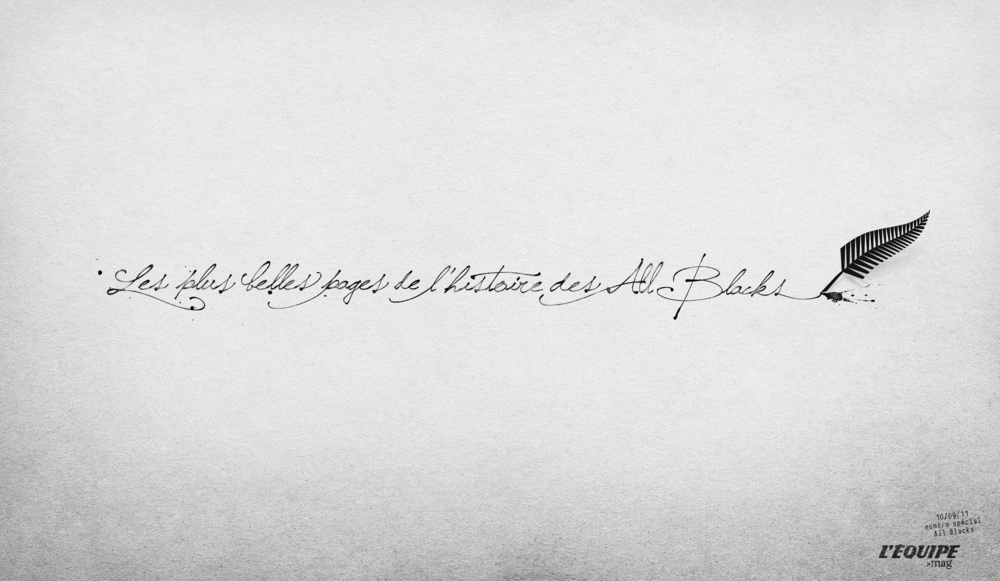 Les plus belles pages de l'histoire des All Blacks
10/09/11
numéro spécial
All Blacks
L'ÉQUIPE
»mag